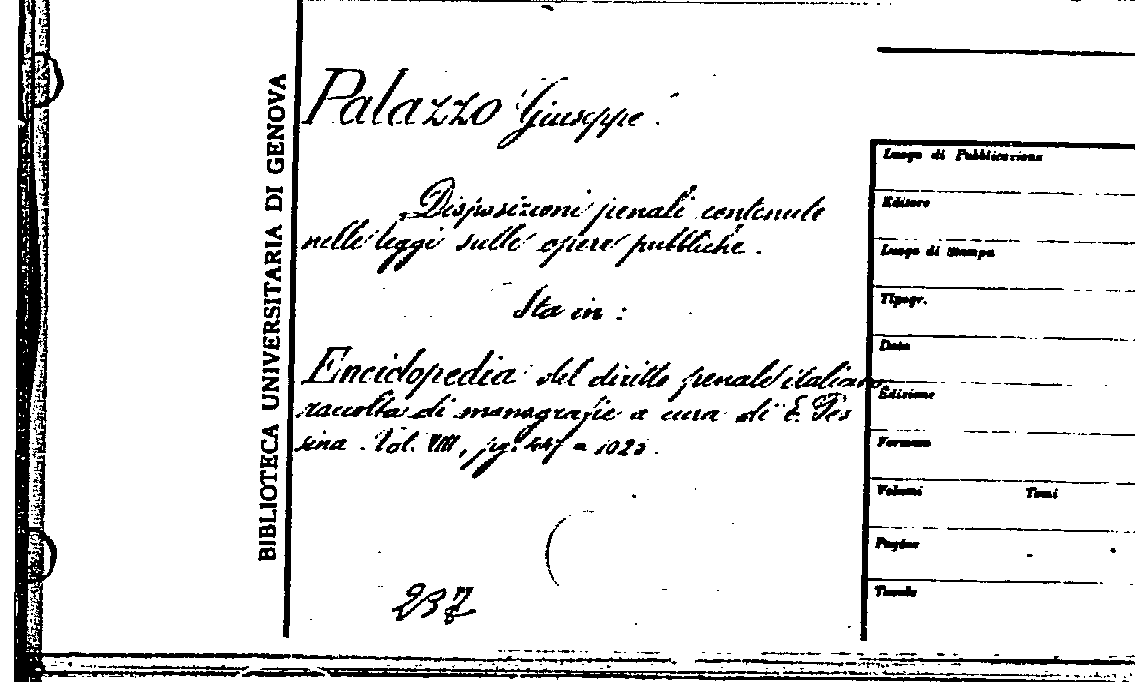 BIBLIOTECA UNIVERSITARIA DI GENOVA
Palazzo Giuseppe.
Disposizioni penali contenute
nelle leggi sulle opere pubbliche.
Sta in :
Enciclopedia del diritto penale italiano
raccolta di monografie a cura di E. Pes
sina. Vol. VIII, pg. 447 a 1025.
237
Luogo di Pubblicazione
Editore
Luogo di stampa
Tipogr.
Data
Edizione
Formato
Volumi Tomi
Pagine
Tavole